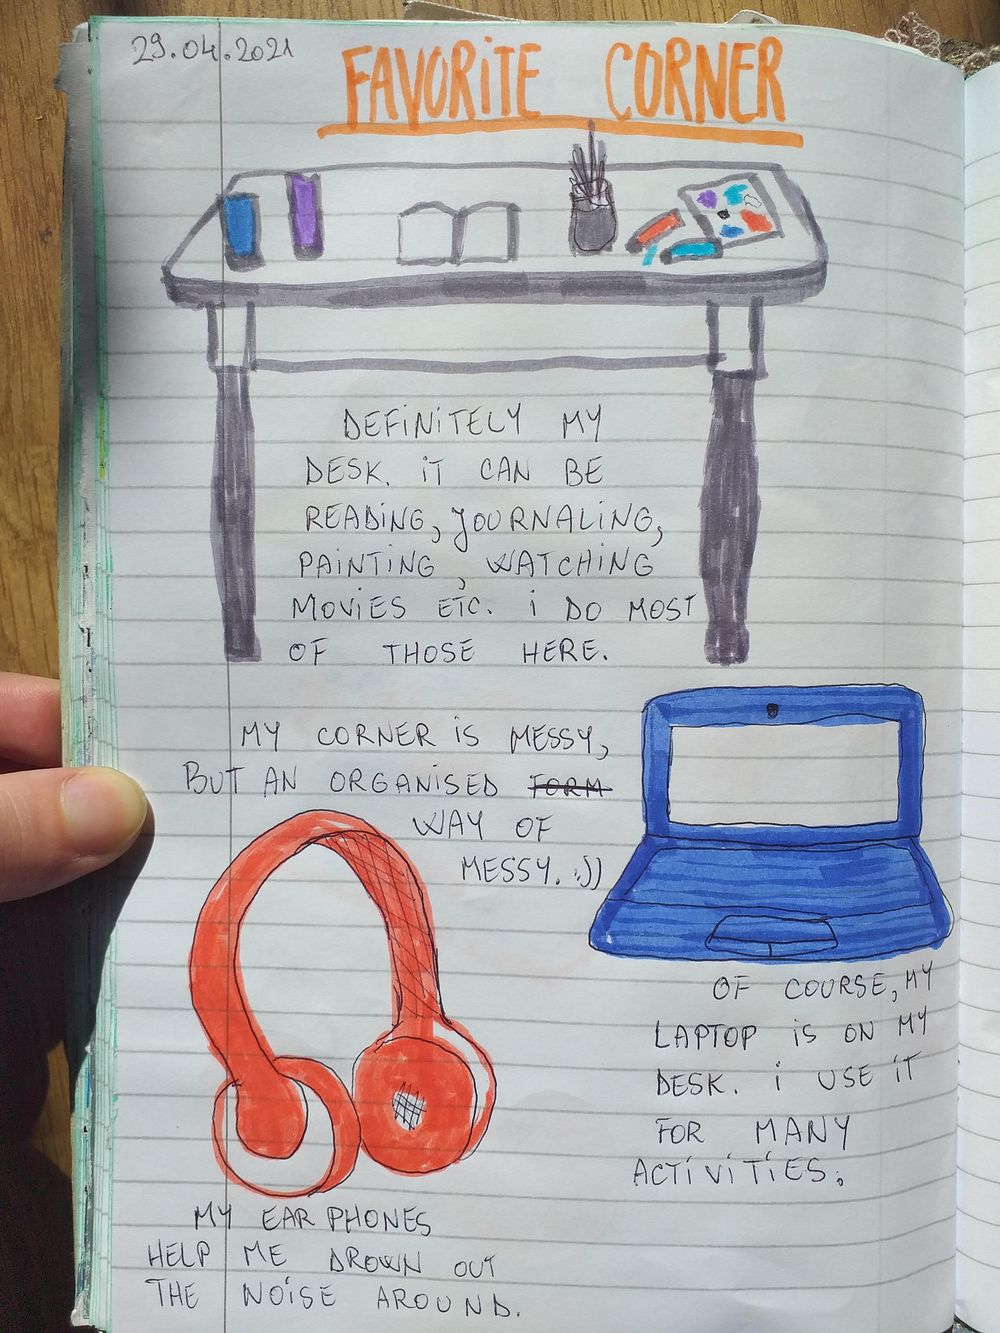 29.04.2021
FAVORiTE CORNER
DEFiNiTELY MY
DESK. iT CAN BE
READiNG, JOURNALiNG,
PAiNTiNG, WATCHiNG
MOViES ETC. i DO MOST
OF THOSE HERE.
MY CORNER iS MESSY,
BUT AN ORGANiSED FORM
WAY OF
MESSY. :))
OF COURSE, MY
LAPTOP iS ON MY
DESK. i USE iT
FOR MANY
ACTiViTiES.
MY EARPHONES
HELP ME DROWN OUT
THE NOiSE AROUND.